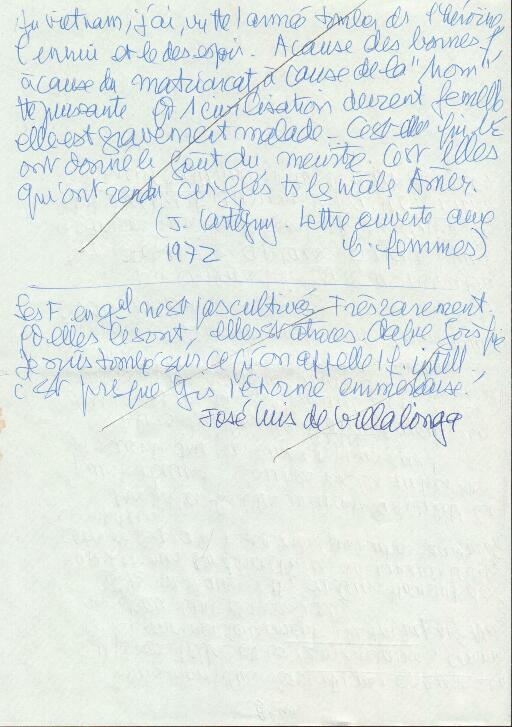 Au Vietnam, j'ai vu tte l'armée tomber ds l'héroïne,
l'ennui et le desespoir. A cause des bonnes f,
à cause du matriarcat, à cause de la "Mom"
tte puissante. Qd 1 civilisation devient femelle
elle est gravement malade - C'est elles qui
ont donné le goût du meurtre. C'est elles
qui ont rendu cinglés ts les mâles Amér.
(J. Cartigny. Lettre ouverte aux
1972 femmes)
Les F. en gal n'est pas cultivées. Très rarement.
Qd elles le sont, elles st atroces. Chaque fois que
je suis tombé sur ce qu'on appelle 1 f. intell.
c'est presque tjs 1 énorme emmerdeuse.
José Luis de Villalonga